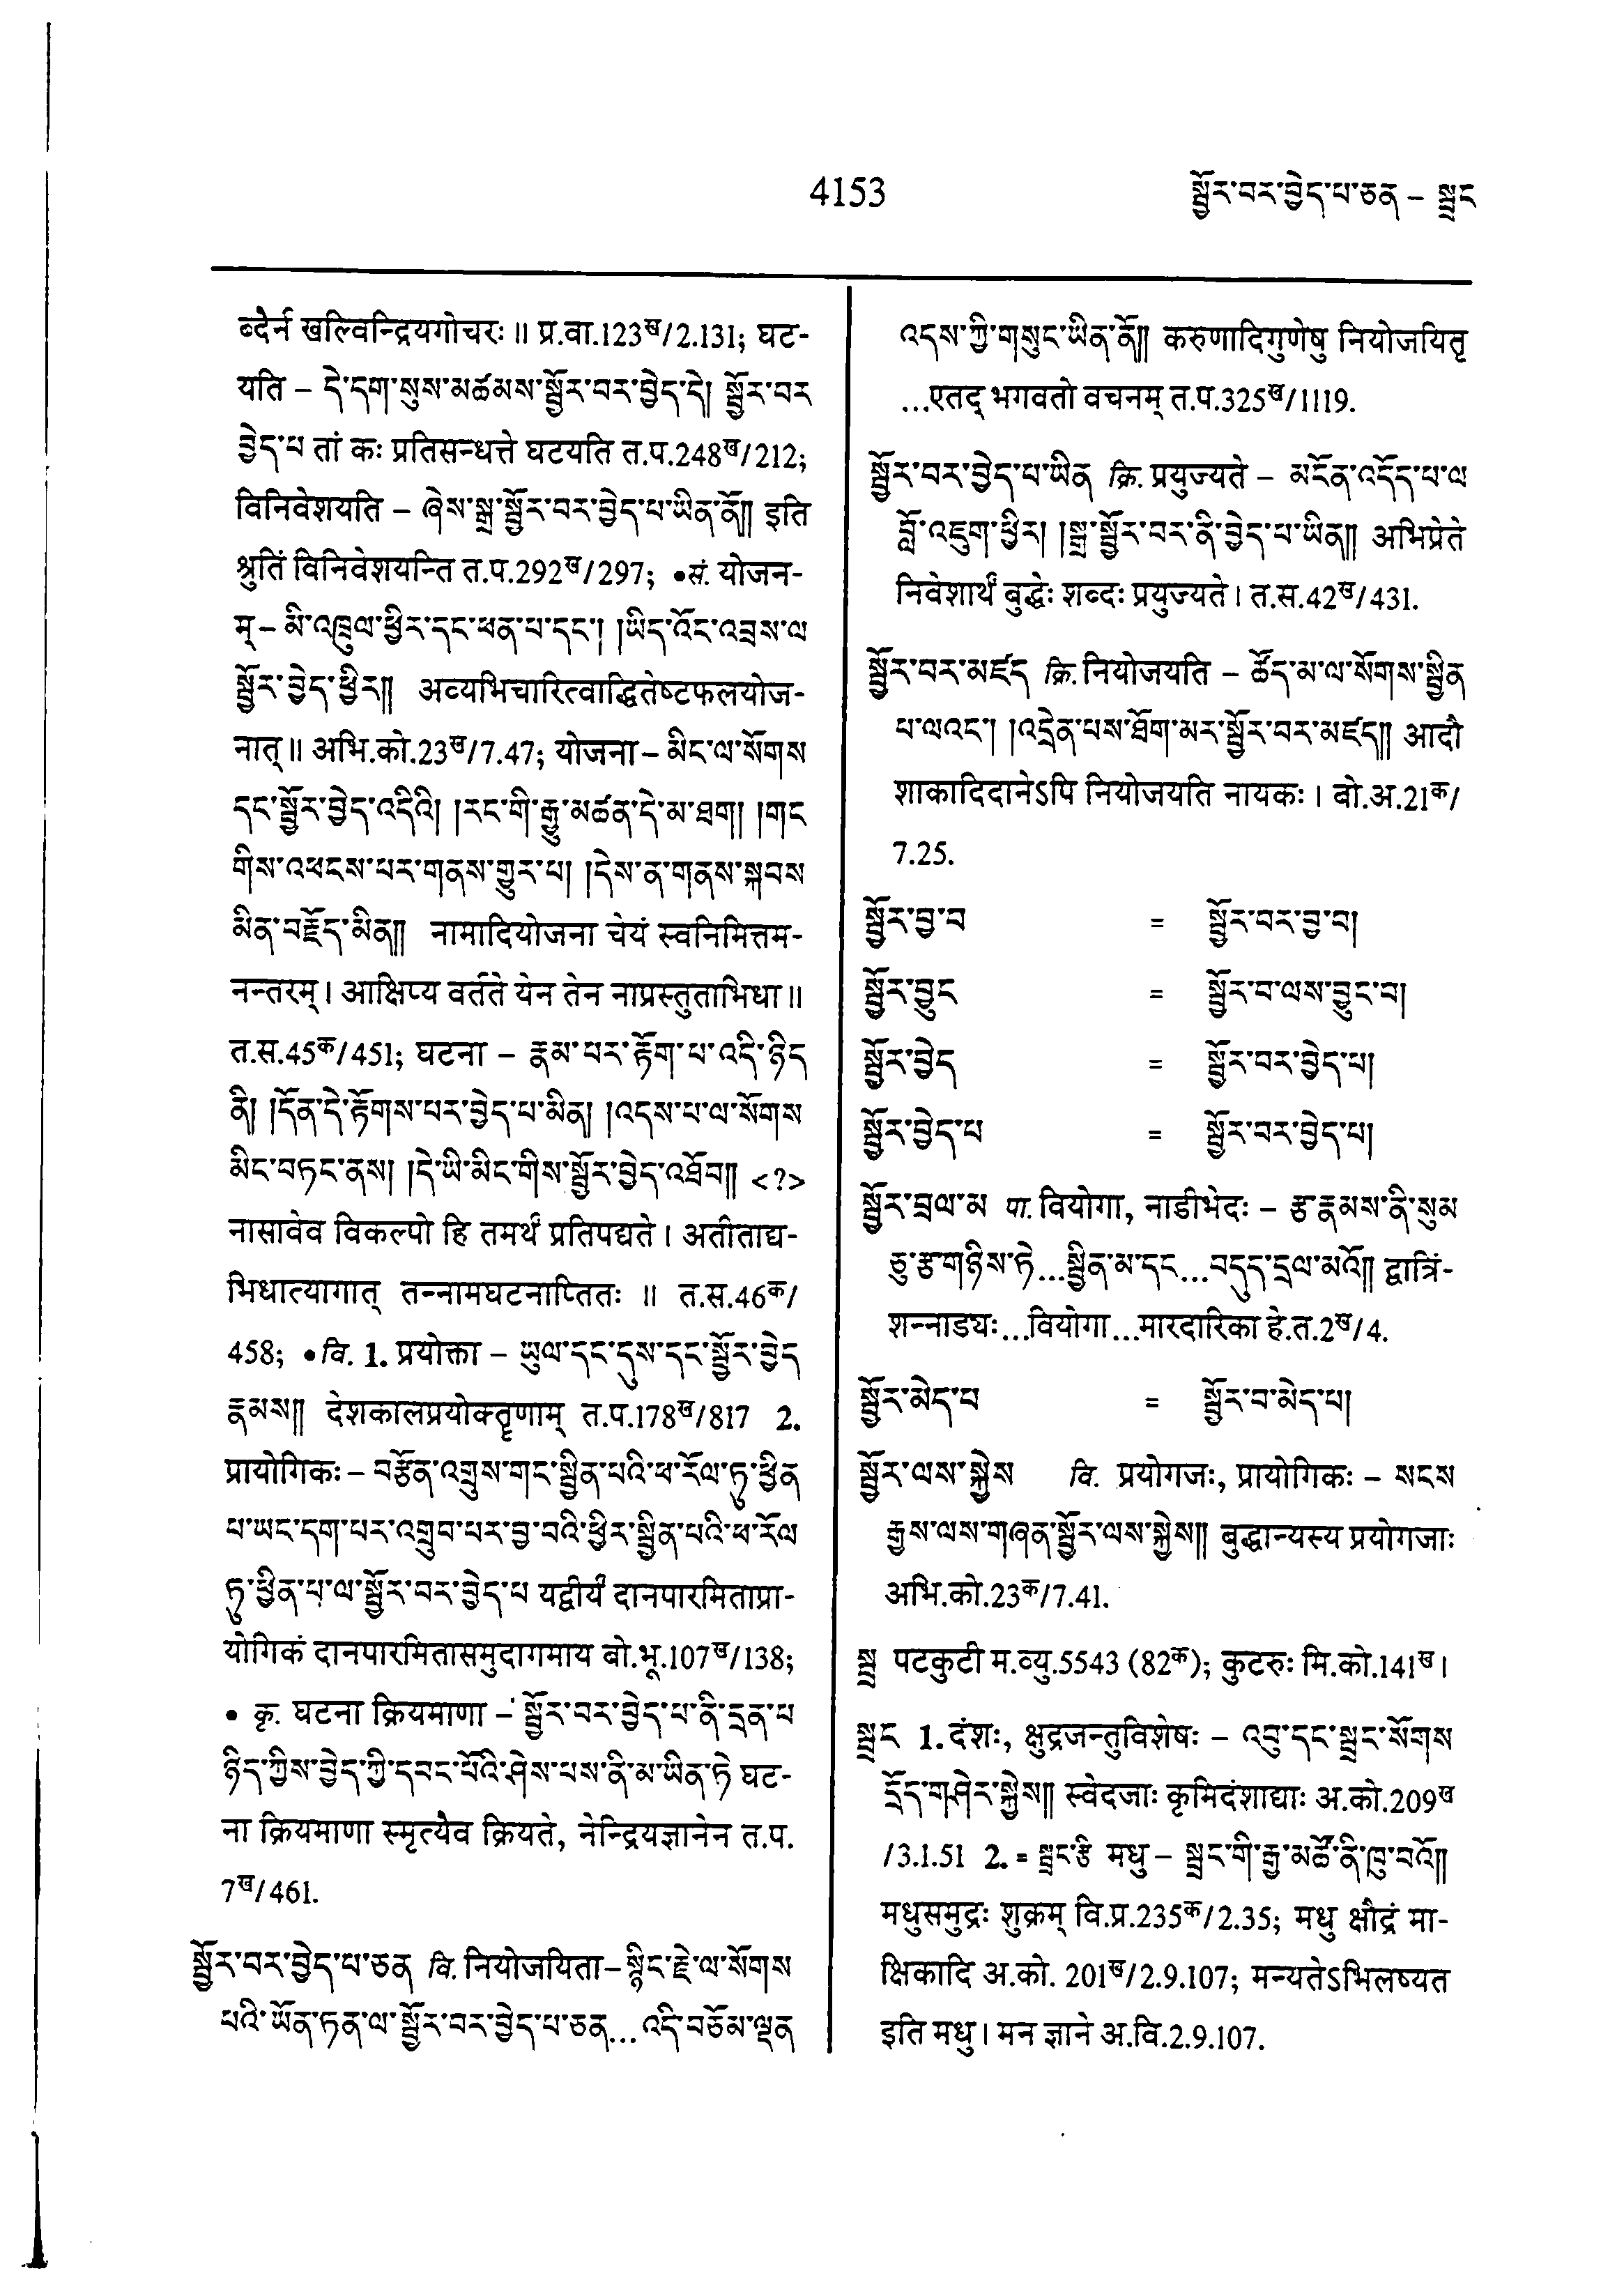 4153
སྦྱོར་བར་བྱེད་པ་ཅན – སྦྲང
ब्दैर्न खल्विन्द्रियगोचरः ॥ प्र.वा.123ख/2.131; घट-
यति – དེ་དག་སུས་མཚམས་སྦྱོར་བར་བྱེད་དེ། སྦྱོར་བར
བྱེད་པ तां कः प्रतिसन्धत्ते घटयति त.प.248ख/212;
विनिवेशयति – ཞེས་སྒྲ་སྦྱོར་བར་བྱེད་པ་ཡིན་ནོ།། इति
श्रुतिं विनिवेशयन्ति त.प.292ख/297; •सं. योजन-
म् – མི་འཁྲུལ་ཕྱིར་དང་ཕན་པ་དང་། །ཡིད་འོང་འབྲས་ལ
སྦྱོར་བྱེད་ཕྱིར།། अव्यभिचारित्वाद्धितेष्टफलयोज-
नात् ॥ अभि.को.23ख/7.47; योजना – མིང་ལ་སོགས
དང་སྦྱོར་བྱེད་འདིའི། །རང་གི་རྒྱུ་མཚན་དེ་མ་ཐག། །གང
གིས་འཕངས་པར་གནས་གྱུར་པ། །དེས་ན་གནས་སྐབས
མིན་བརྗོད་མིན།། नामादियोजना चेयं स्वनिमित्तम-
नन्तरम् । आक्षिप्य वर्तते येन तेन नाप्रस्तुताभिधा ॥
त.स.45क/451; घटना – རྣམ་པར་རྟོག་པ་འདི་ཉིད
ནི། །དོན་དེ་རྟོགས་པར་བྱེད་པ་མིན། །འདས་པ་ལ་སོགས
མིང་བཏང་ནས། །དེ་ཡི་མིང་གིས་སྦྱོར་བྱེད་འཐོབ།། <?>
नासावेव विकल्पो हि तमर्थं प्रतिपद्यते । अतीताद्य-
भिधात्यागात् तन्नामघटनाप्तितः ॥ त.स.46क/
458; •वि. 1. प्रयोक्ता – ཡུལ་དང་དུས་དང་སྦྱོར་བྱེད
རྣམས།། देशकालप्रयोक्तॄणाम् त.प.178ख/817 2.
प्रायोगिकः – བརྩོན་འགྲུས་གང་སྦྱིན་པའི་ཕ་རོལ་ཏུ་ཕྱིན
པ་ཡང་དག་པར་འགྲུབ་པར་བྱ་བའི་ཕྱིར་སྦྱིན་པའི་ཕ་རོལ
ཏུ་ཕྱིན་པ་ལ་སྦྱོར་བར་བྱེད་པ यद्वीर्यं दानपारमिताप्रा-
योगिकं दानपारमितासमुदागमाय बो.भू.107ख/138;
• कृ. घटना क्रियमाणा – སྦྱོར་བར་བྱེད་པ་ནི་དྲན་པ
ཉིད་ཀྱིས་བྱེད་ཀྱི་དབང་པོའི་ཤེས་པས་ནི་མ་ཡིན་ཏེ घट-
ना क्रियमाणा स्मृत्यैव क्रियते, नेन्द्रियज्ञानेन त.प.
7ख/461.
སྦྱོར་བར་བྱེད་པ་ཅན वि. नियोजयिता – སྙིང་རྗེ་ལ་སོགས
པའི་ཡོན་ཏན་ལ་སྦྱོར་བར་བྱེད་པ་ཅན... འདི་བཅོམ་ལྡན
འདས་ཀྱི་གསུང་ཡིན་ནོ།། करुणादिगुणेषु नियोजयितृ
...एतद् भगवतो वचनम् त.प.325ख/1119.
སྦྱོར་བར་བྱེད་པ་ཡིན क्रि. प्रयुज्यते – མངོན་འདོད་པ་ལ
བློ་འཇུག་ཕྱིར། །སྒྲ་སྦྱོར་བར་ནི་བྱེད་པ་ཡིན།། अभिप्रेते
निवेशार्थं बुद्धेः शब्दः प्रयुज्यते । त.स.42ख/431.
སྦྱོར་བར་མཛད क्रि. नियोजयति – ཚོད་མ་ལ་སོགས་སྦྱིན
པ་ལའང་། །འདྲེན་པས་ཐོག་མར་སྦྱོར་བར་མཛད།། आदौ
शाकादिदानेऽपि नियोजयति नायकः । बो.अ.21क/
7.25.
སྦྱོར་བྱ་བ = སྦྱོར་བར་བྱ་བ།
སྦྱོར་བྱུང = སྦྱོར་བ་ལས་བྱུང་བ།
སྦྱོར་བྱེད = སྦྱོར་བར་བྱེད་པ།
སྦྱོར་བྱེད་པ = སྦྱོར་བར་བྱེད་པ།
སྦྱོར་བྲལ་མ पा. वियोगा, नाडीभेदः – རྩ་རྣམས་ནི་སུམ
ཅུ་རྩ་གཉིས་ཏེ...སྦྱིན་མ་དང...བདུད་དྲལ་མའོ།། द्वात्रिं-
शन्नाड्यः...वियोगा...मारदारिका हे.त.2ख/4.
སྦྱོར་མེད་པ = སྦྱོར་བ་མེད་པ།
སྦྱོར་ལས་སྐྱེས वि. प्रयोगजः, प्रायोगिकः – སངས
རྒྱས་ལས་གཞན་སྦྱོར་ལས་སྐྱེས།། बुद्धान्यस्य प्रयोगजाः
अभि.को.23क/7.41.
སྦྲ पटकुटी म.व्यु.5543 (82क); कुटरुः मि.को.141ख ।
སྦྲང 1. दंशः, क्षुद्रजन्तुविशेषः – འབུ་དང་སྦྲང་སོགས
དྲོད་གཤེར་སྐྱེས།། स्वेदजाः कृमिदंशाद्याः अ.को.209ख
/3.1.51 2. = སྦྲང་རྩི मधु – སྦྲང་གི་རྒྱ་མཚོ་ནི་ཁུ་བའོ།།
मधुसमुद्रः शुक्रम् वि.प्र.235क/2.35; मधु क्षौद्रं मा-
क्षिकादि अ.को. 201ख/2.9.107; मन्यतेऽभिलष्यत
इति मधु । मन ज्ञाने अ.वि.2.9.107.